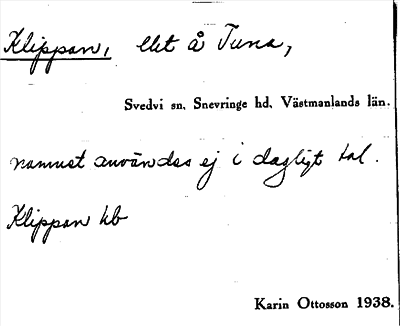 Klippan, lht å Tuna,
Svedvi sn. Snevringe hd. Västmanlands län.
namnet användes ej i dagligt tal.
Klippan hb
Karin Ottosson 1938.